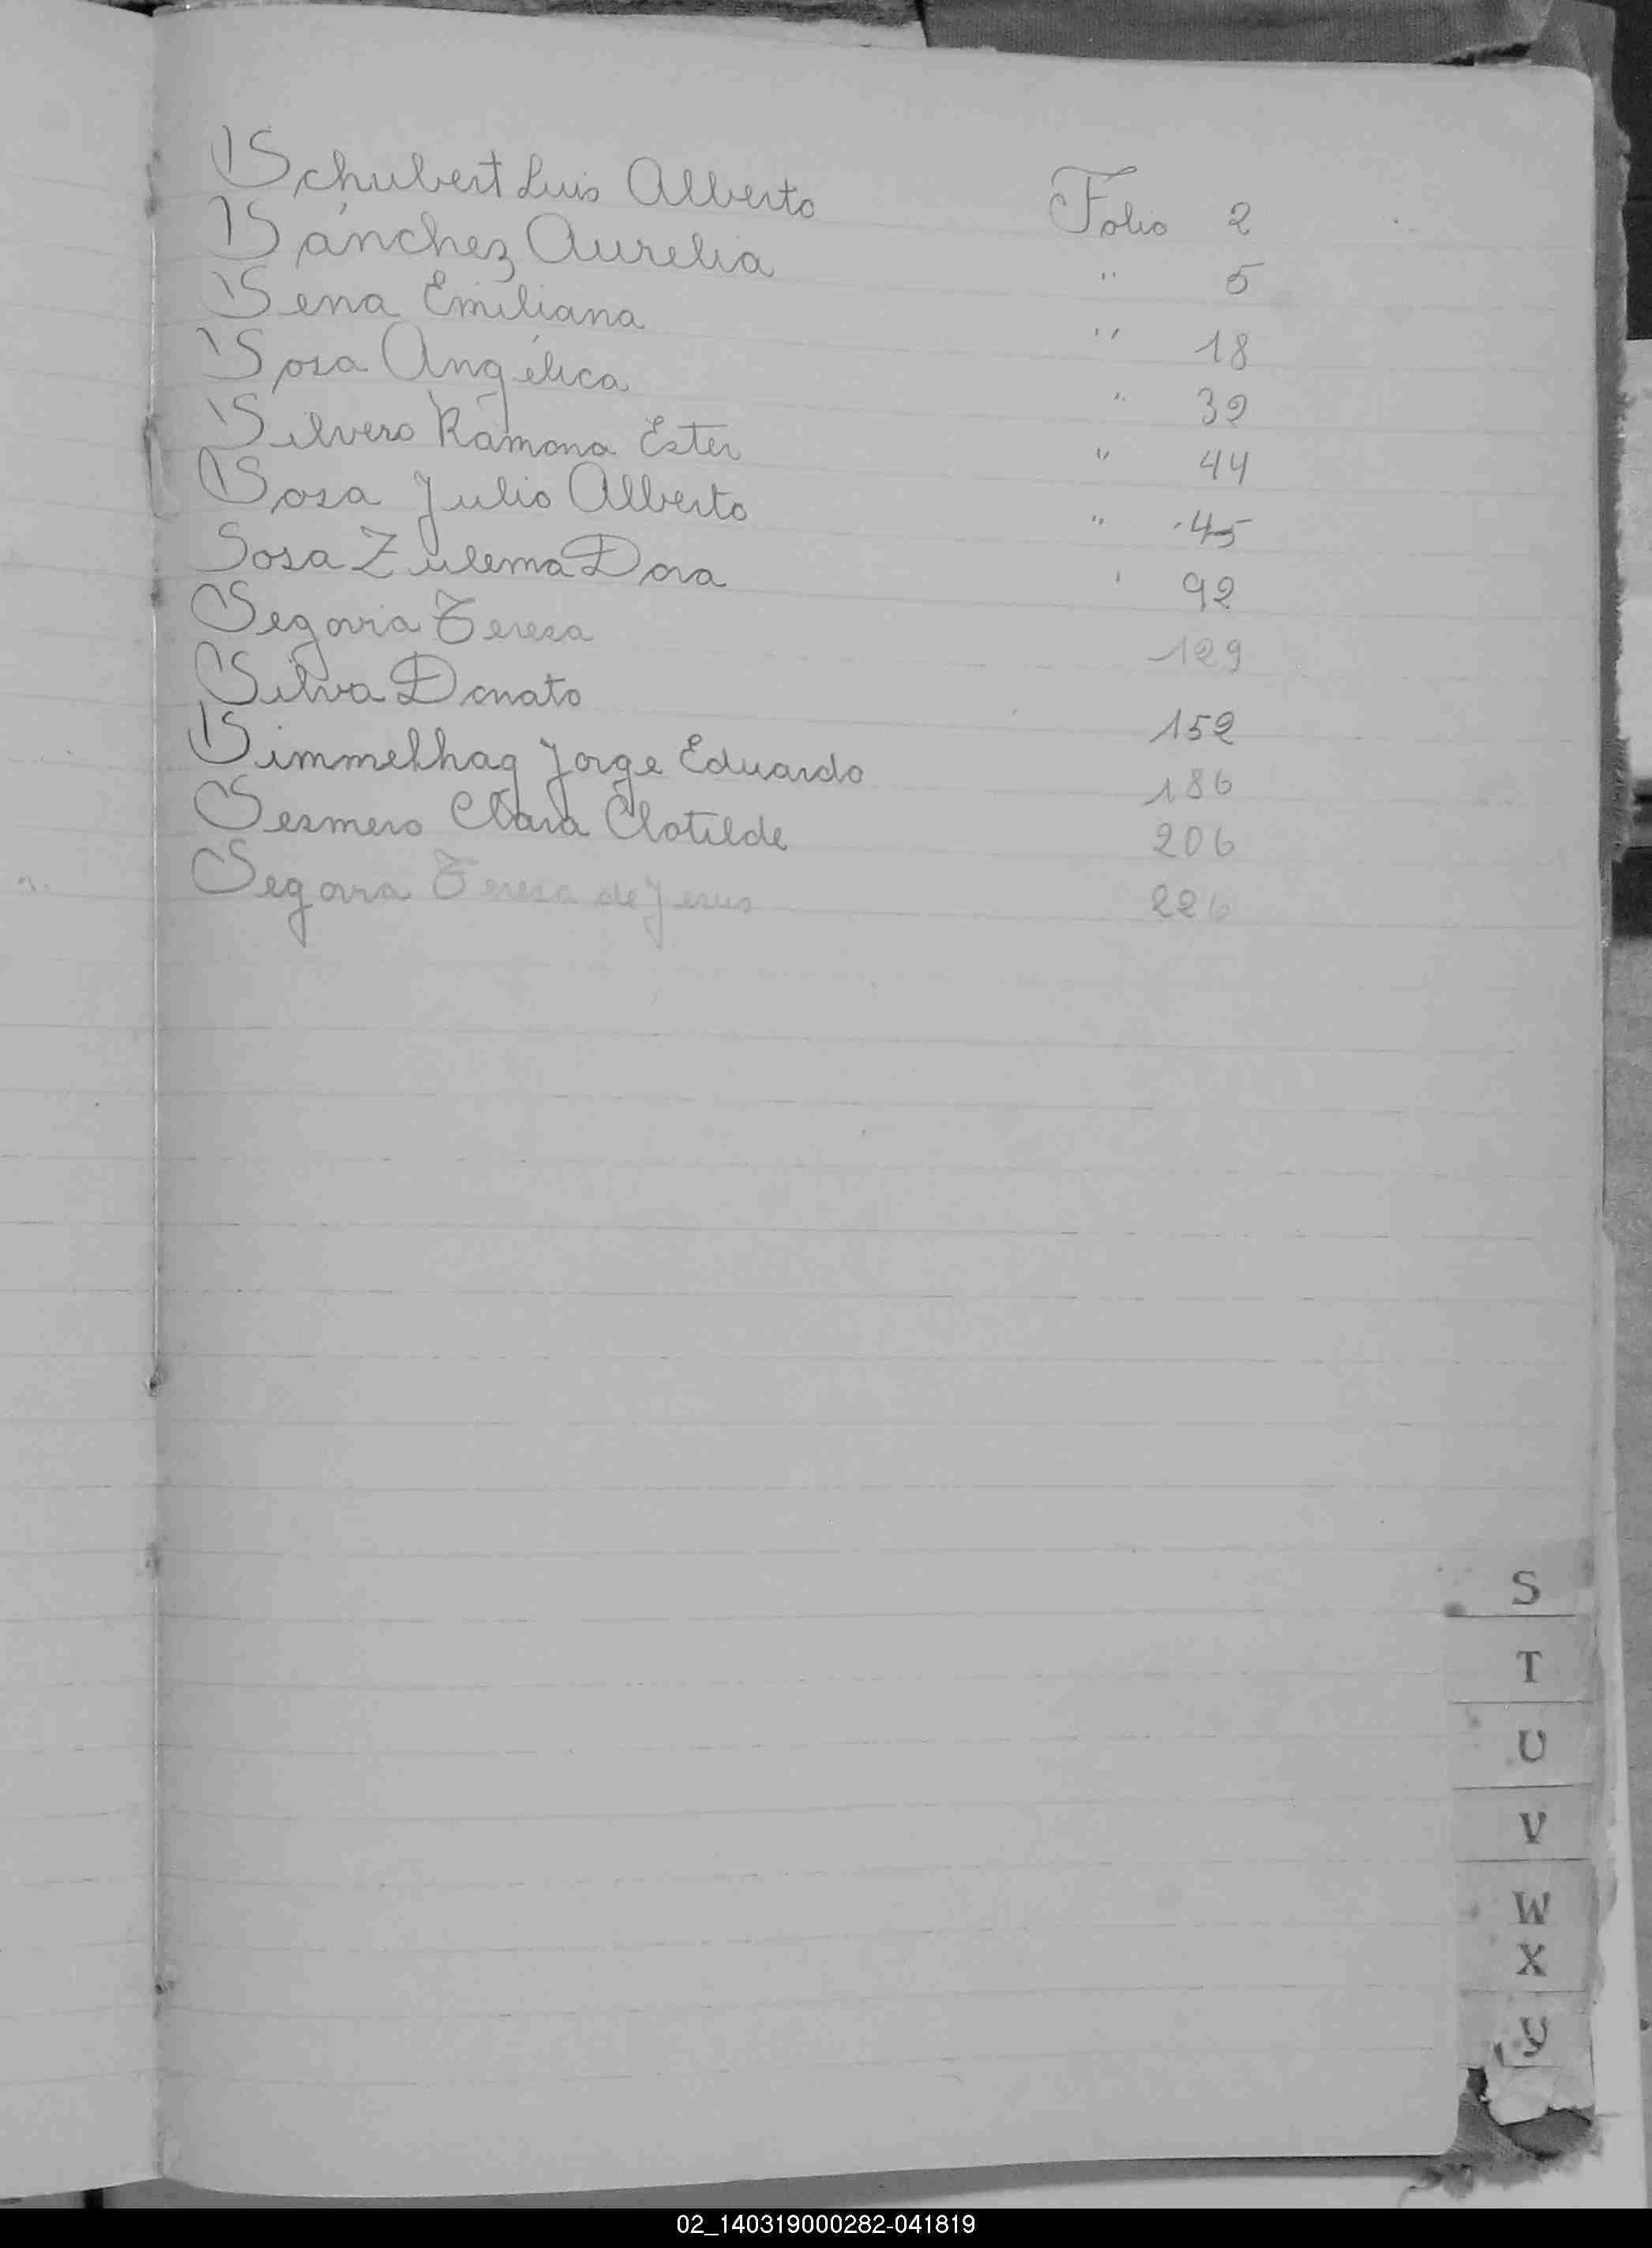 Schubert Luis Alberto Folio 2
Sánchez Aurelia " 5
Sena Emiliana " 18
Sosa Angélica " 32
Silvero Ramona Ester " 44
Sosa Julio Alberto " 45
Sosa Zulema Dora ' 92
Segovia Teresa 129
Silva Donato 152
Jorge Eduardo 186
Sesmero Clara Clotilde 206
Segovia Teresa de Jesus 226
S
T
U
V
W
X
Y
02_140319000282-041819